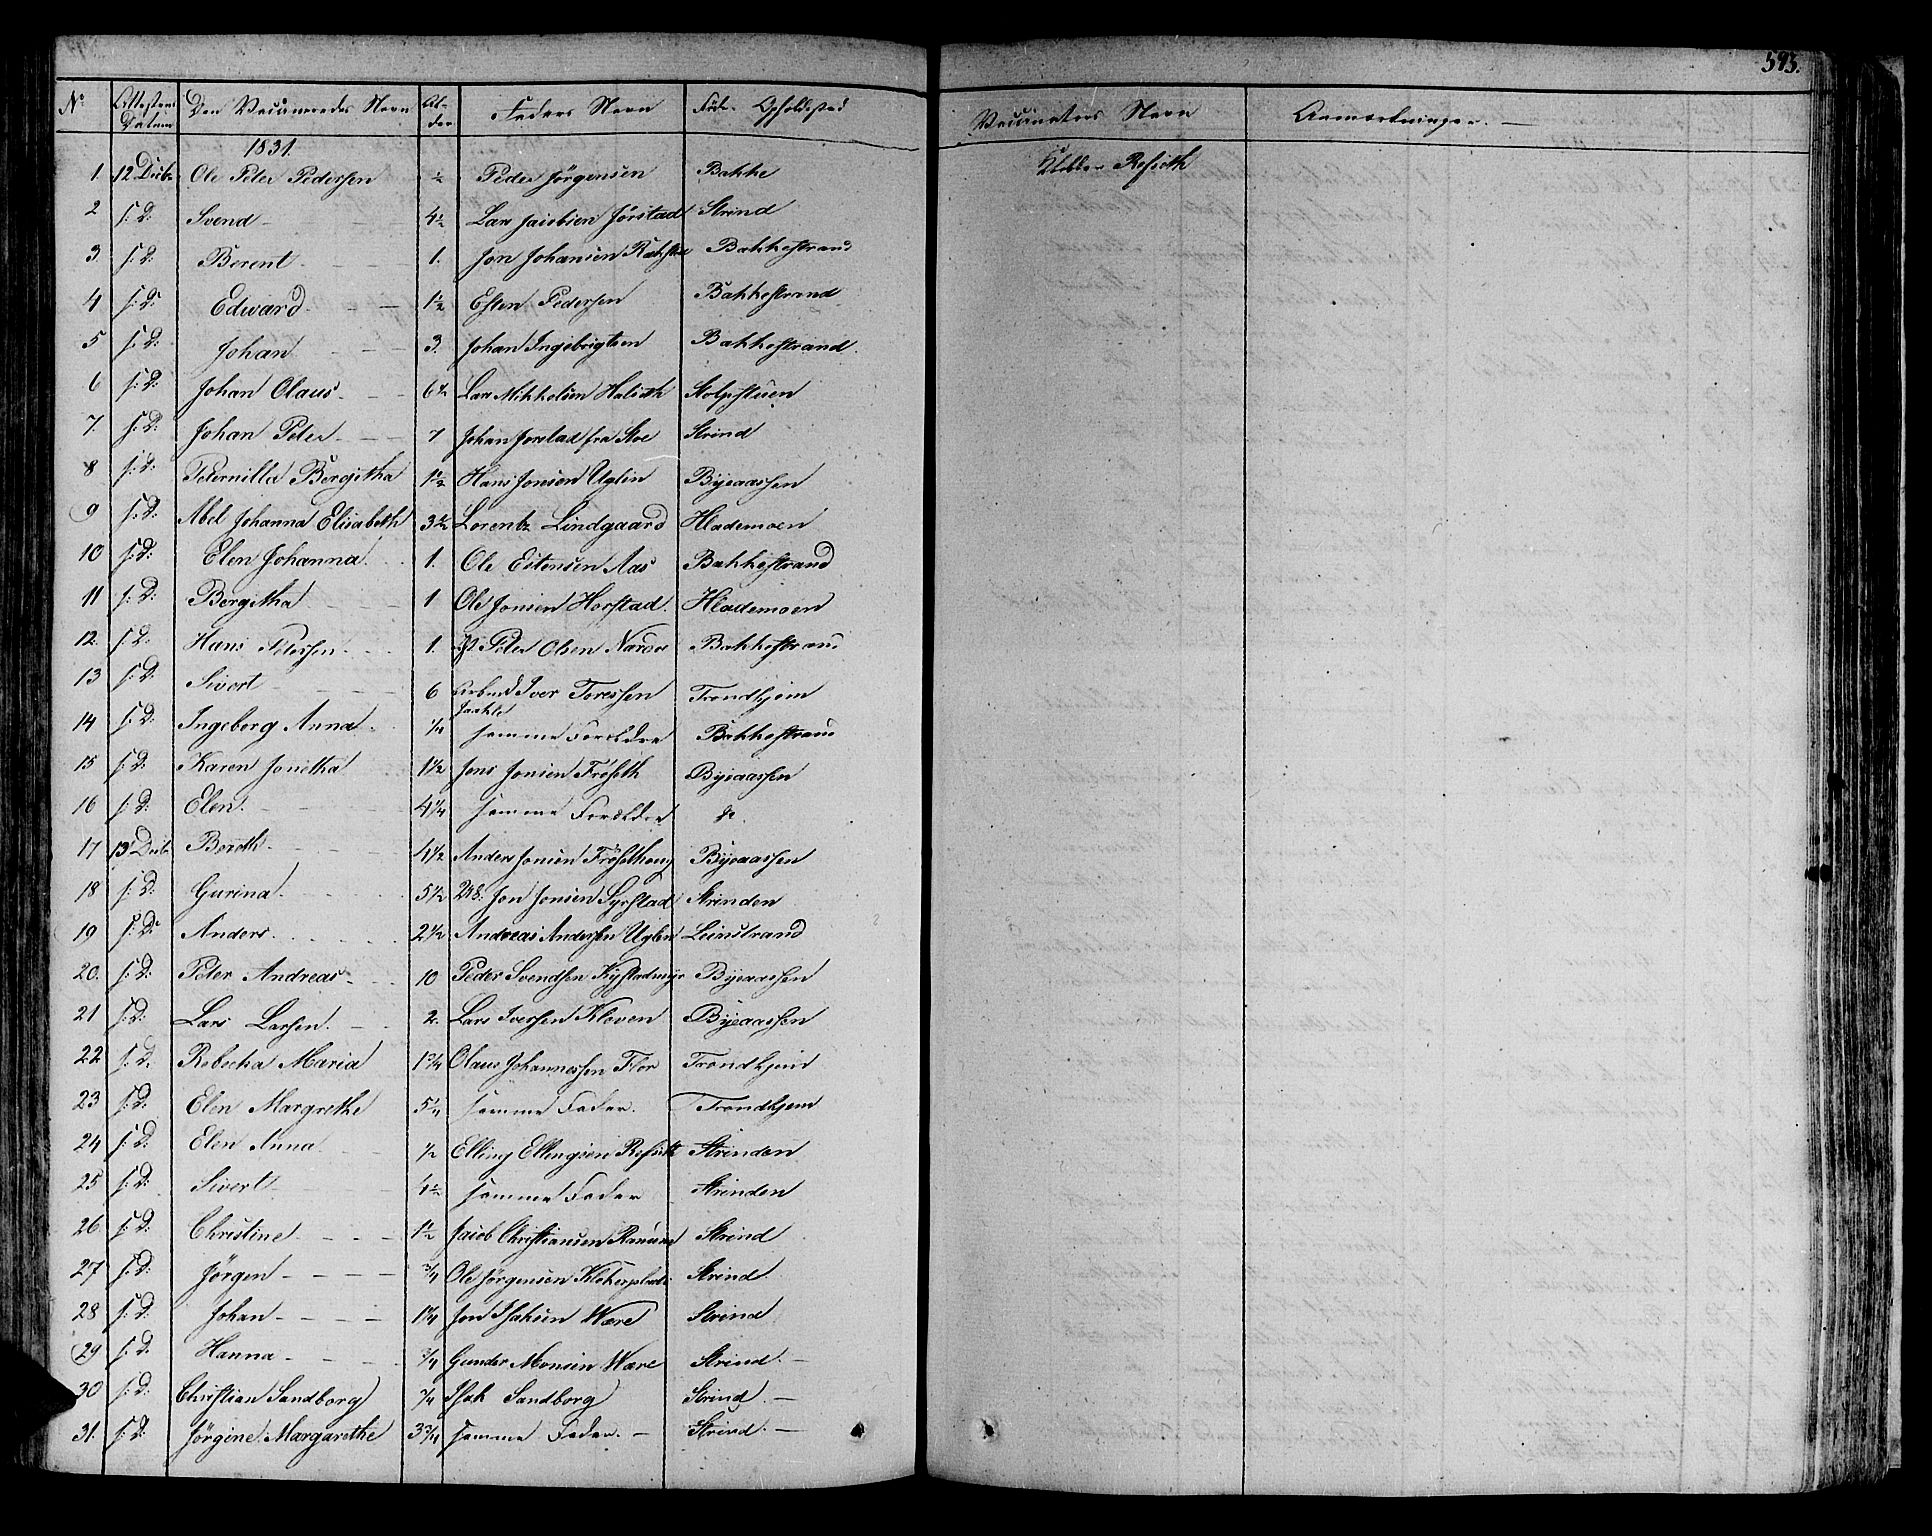 593.
No Attestens Datum Den Vaccineredes Navn Alder Faders Navn Føde- Opholdssted Vaccinators Navn Anmærkninger.
1831.
1. 12 Decbr Ole Peter Pedersen ½ Peder Jörgensen Bakke Klokker Refseth
2 s: D: Svend 4½ Lars Jacobsen Jörstad Strind
3. s: D: Berent 1. Jon Johansen Bakhestrand
4 s: D: Edward 1½ Esten Pedersen Bakhestrand
5 s: D: Johan 3. Johan Ingebrigtsen Bakhestrand.
6 s: D: Johan Olaus 6½ Lars Mikkelsen Halseth Stolpstuen
7. s: D: Johan Peter 7 Johan Jorstad fra Stoe Strind
8 s: D: Peternilla Bergitha 1½ Hans Jonsen Uglen Byeaassen
9 s: D: Abel Johanna Elisabeth 3½ Lorentz Lindgaard Hlademoen
10 s: D: Elen Johanna. 1. Ole Estensen Aas Bakhestrand
11 s: D: Bergitha 1 Ole Jonsen Horstad. Hlademoen
12. s: D: Hans Petersen 1. Peter Olsen Bakhestrand
13 s: D: Sivert 6 Arbmd Iver Toressen Trondhjem
14 s: D: Ingeborg Anna ¼ samme Foreldre Bakhestrand
15 s: D: Karen Jonetha 1½ Jens Jonsen Fröseth Byeaassen
16 s: D: Elen. 4¼ samme Foreldre do
17 13 Decbr Bereth 4½ Anders Jonsen Byeaassen
18 s: D: Gurina 5½ Jon Jonsen Syrstad Strinden
19 s: D: Anders 2½ Andreas Andersen Uglen Leinstrand
20. s: D: Peter Andreas 10 Peder Svendsen Kystadmyr Byeaassen
21 s: D: Lars Larsen. 2. Lars Iversen Kleven Byeaassen
22 s: D. Rebecka Maria 1¾ Olaus Johannessen Flor Trondhjem
23 s: D: Elen Margrethe 5¼ samme Fader. Trondhjem
24 s: D: Elen Anna ½ Elling Ellengsen Refseth Strinden
25 s: D: Sivert 4½ samme Fader Strinden
26 s: D: Christine 1½ Jacob Christiansen Strind
27 s: D: Jörgen ¾ Ole Jörgensen Strind
28 s: D: Johan 1¼ Jon Isaksen Være Strind
29 s: D: Hanna ¾ Gunder Monsen Være Strind.
30 s: D: Christian Sandborg ¾ Isak Sandborg Strind.
31. s: D: Jörgine Margarethe 3¾ samme Fader. Strind.